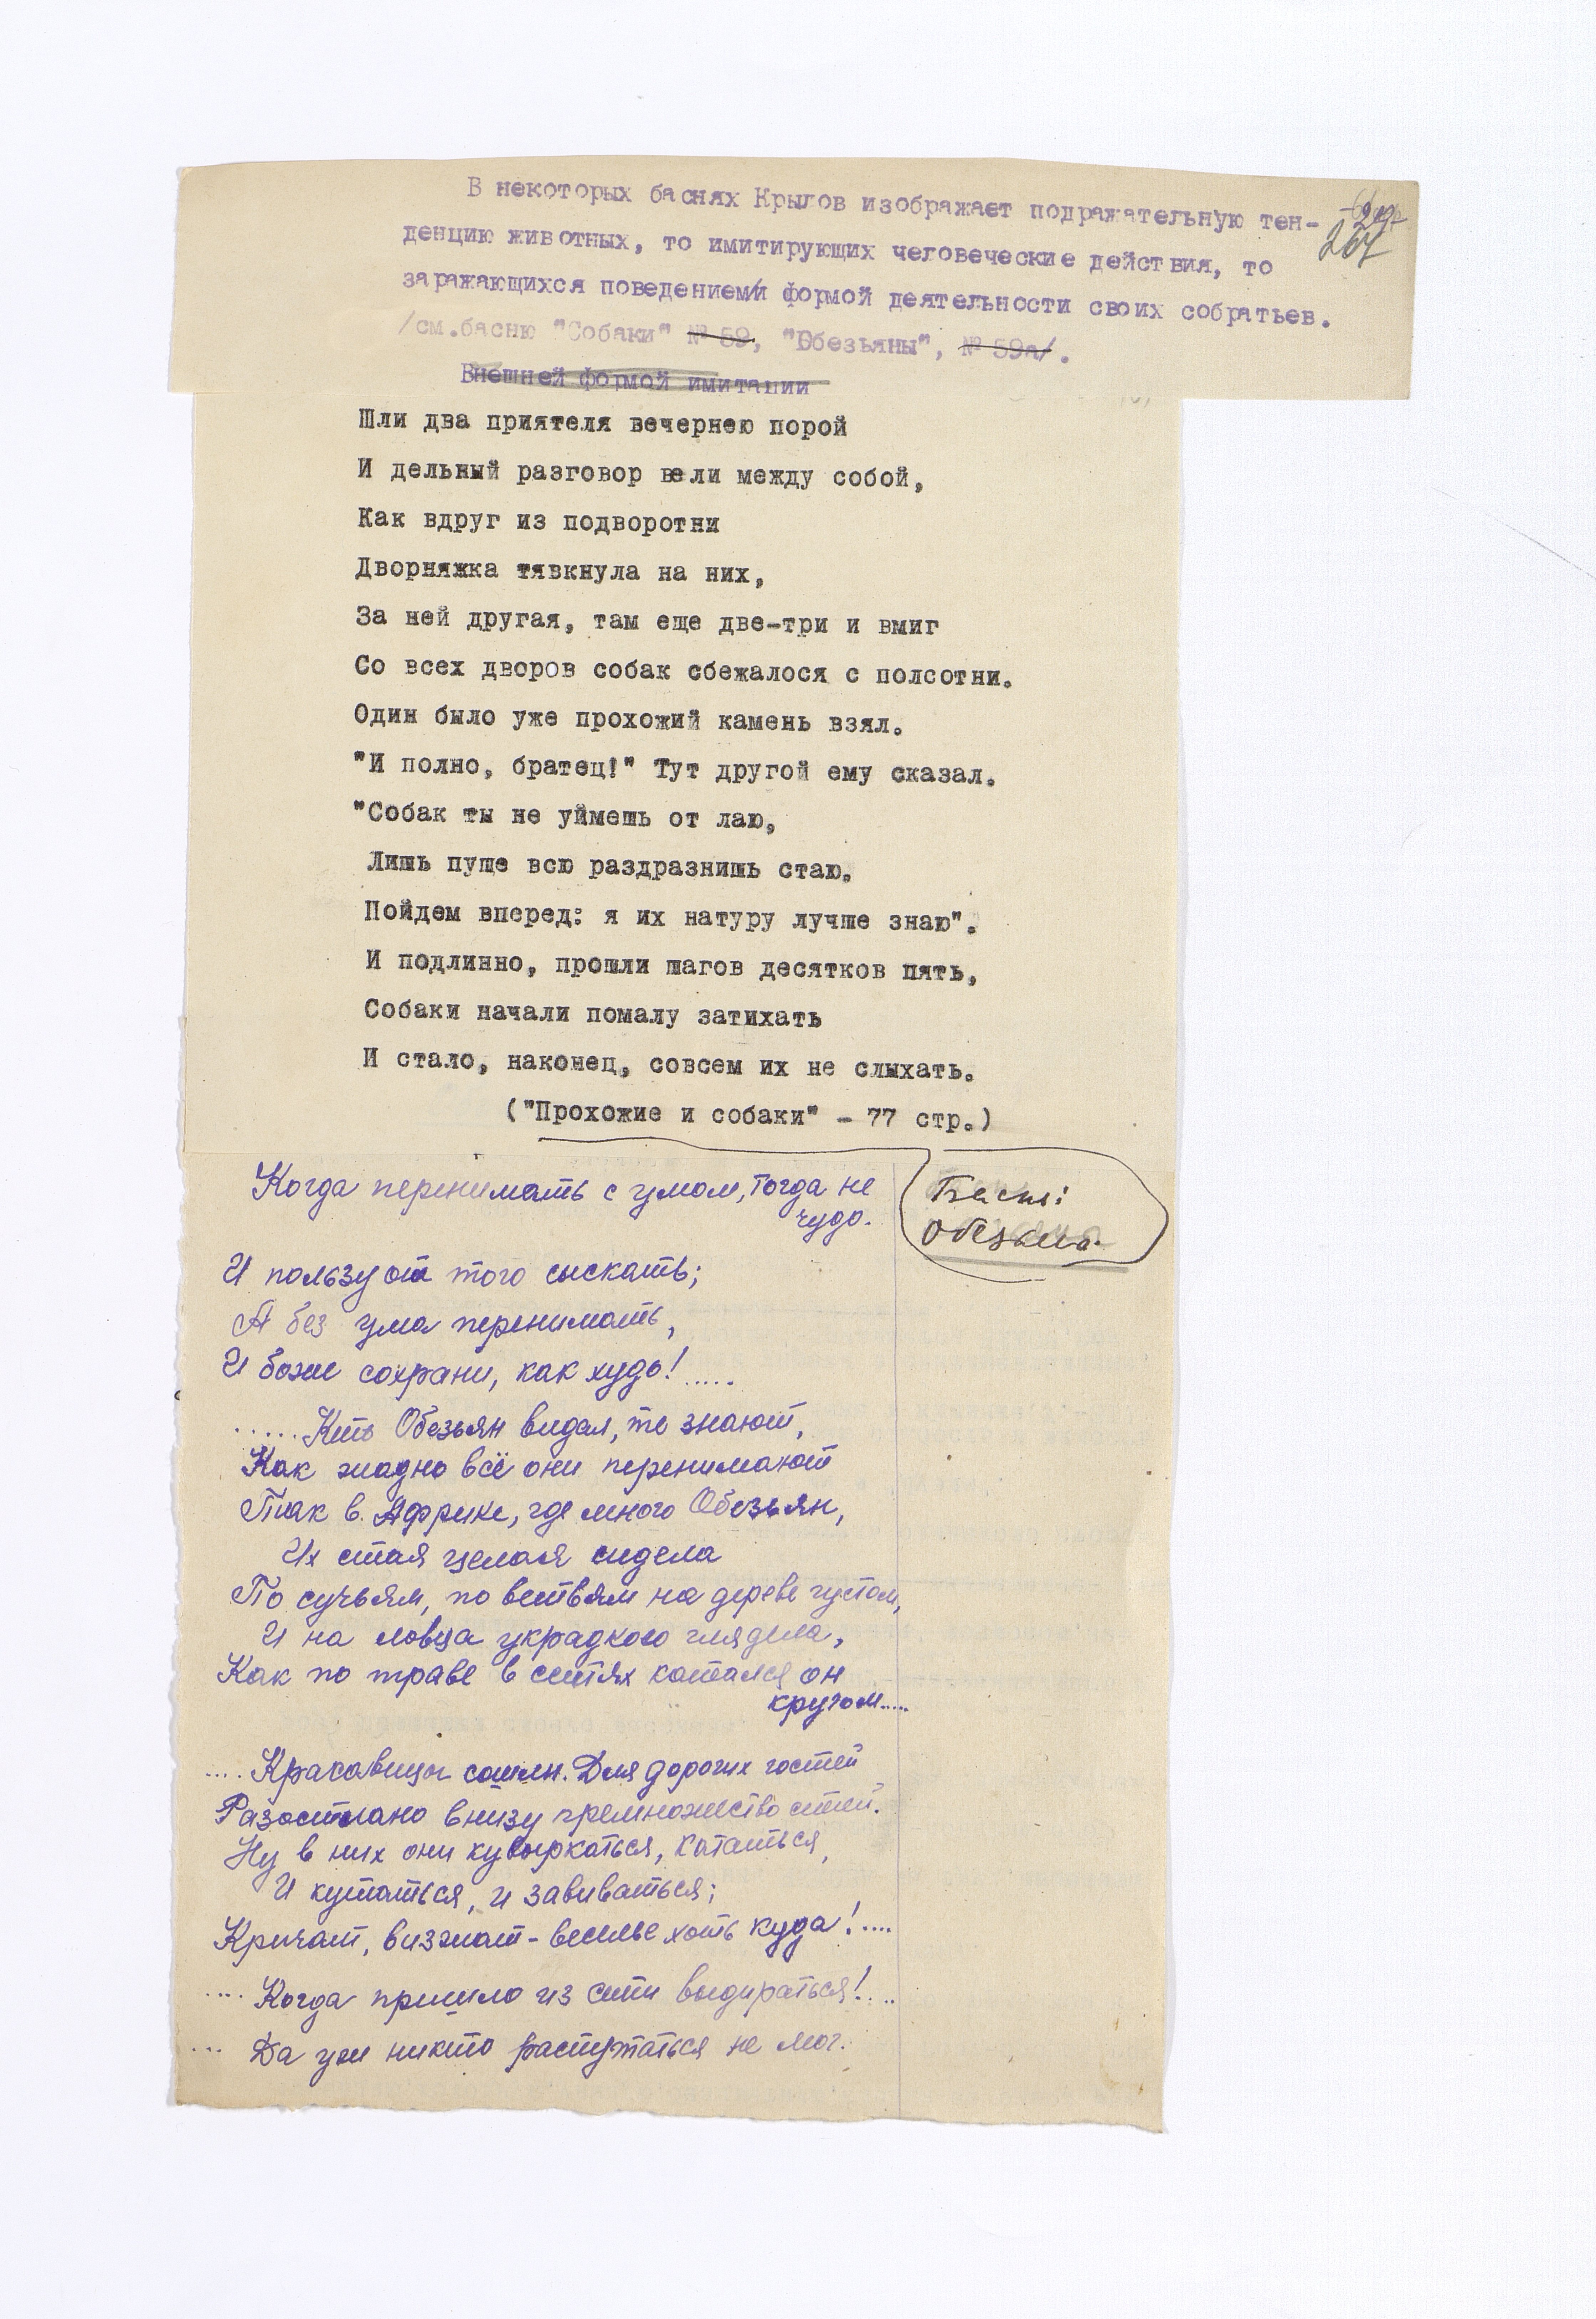 В некоторых баснях Крылов изображает подражательную тен-
267
денцию животных, то имитирующих человеческие действия, то
заражающихся поведением и формой деятельности своих собратьев.
/см.басню "Собаки" № 59, "Обезьяны", № 59а/.
Внешней формой имитации
Шли два приятеля вечернею порой
И дельный разговор вели между собой,
Как вдруг из подворотни
Дворняжка тявкнула на них,
За ней другая, там еще две-три и вмиг
Со всех дворов собак сбежалося с полсотни.
Один было уже прохожий камень взял.
"И полно, братец!" Тут другой ему сказал.
"Собак ты не уймешь от лаю,
Лишь пуще всю раздразнишь стаю.
Пойдем вперед: я их натуру лучше знаю".
И подлинно, прошли шагов десятков пять,
Собаки начали помалу затихать
И стало, наконец, совсем их не слыхать.
("Прохожие и собаки" - 77 стр.)
Басня:
Обезьяна.
Когда перенимать с умом, тогда не
чудо.
И пользу от того сыскать;
А без ума перенимать,
И боже сохрани, как худо!.....
.....Кто Обезьян видал, те знают,
Как жадно всё они перенимают
Так в Африке, где много Обезьян,
Их стая целая сидела
По сучьям, по ветвям на дереве густом,
И на ловца украдкою глядела,
Как по траве в сетях катался он
кругом.....
.... Красавицы сошли. Для дорогих гостей
Разостлано внизу премножество сетей.
Ну в них они кувыркаться, кататься,
И кутаться, и завиваться;
Кричат, визжат - веселье хоть куда!....
.... Когда пришло из сети выдираться!....
... Да уж никто распутаться не мог.